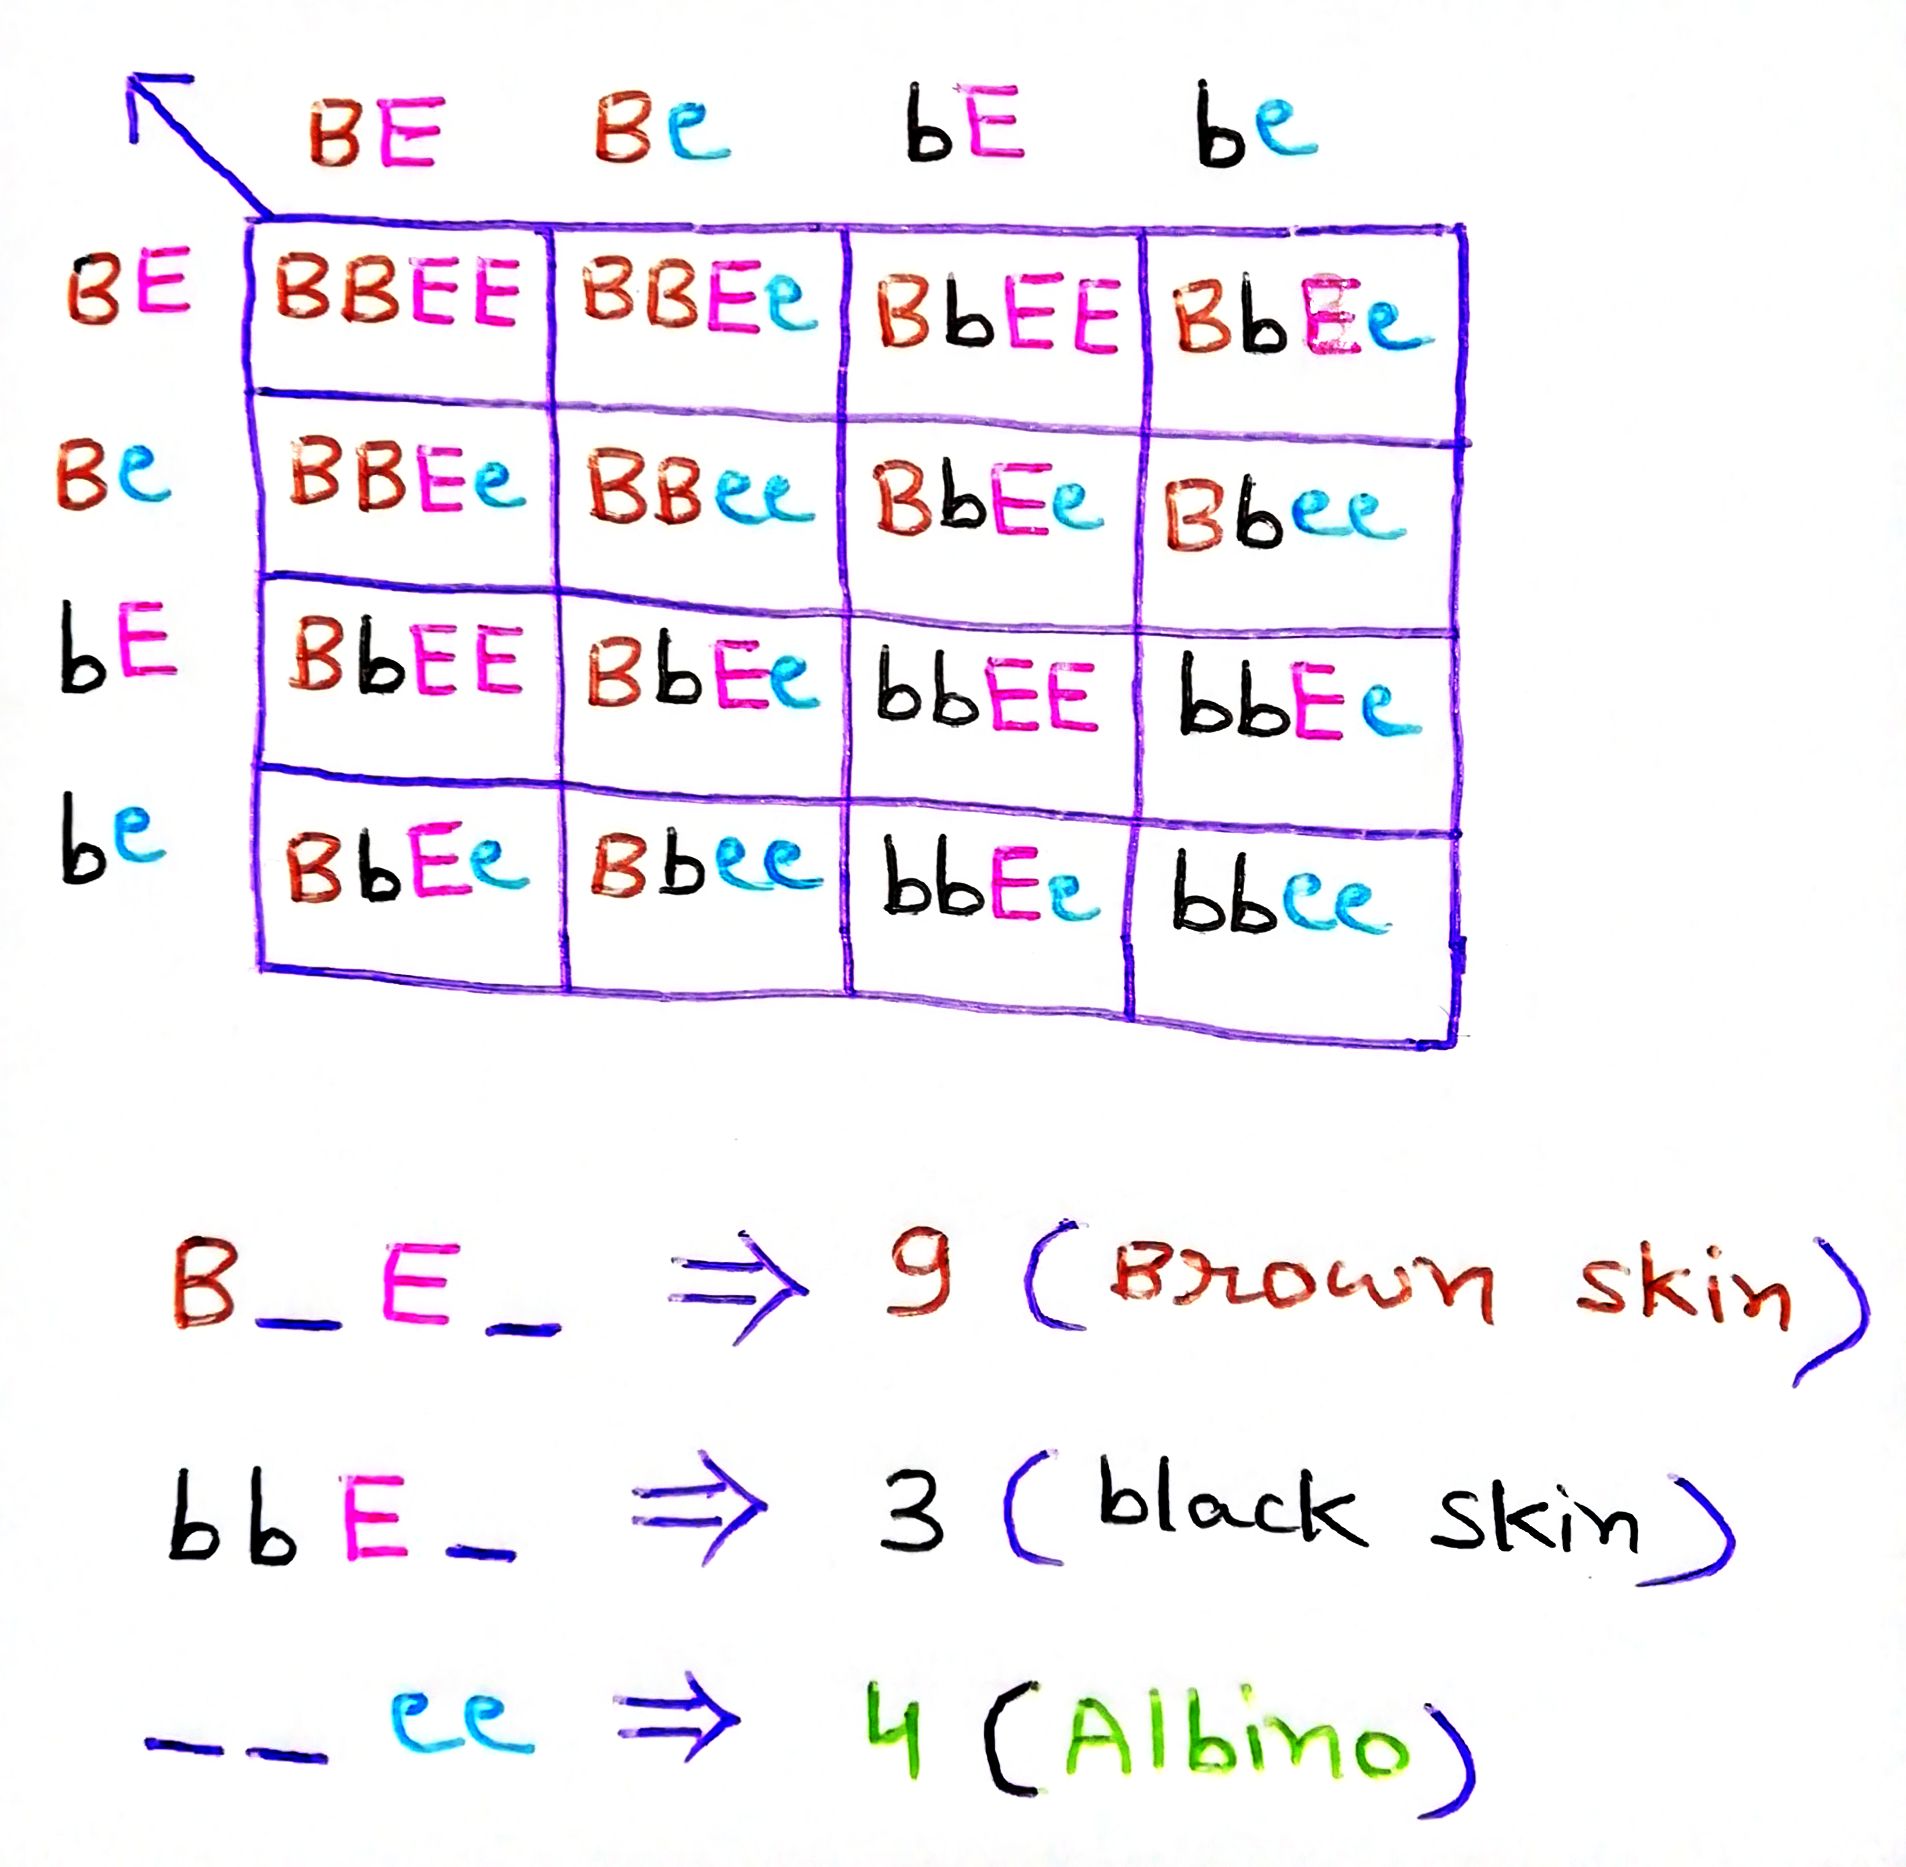 BE Be bE be
BE BBEE BBEe BbEE BbEe
Be BBEe BBee BbEe Bbee
bE BbEE BbEe bbEE bbEe
be BbEe Bbee bbEe bbee
B_E_ ⇒ 9 (Brown skin)
bbE_ ⇒ 3 (black skin)
_ _ ee ⇒ 4 (Albino)